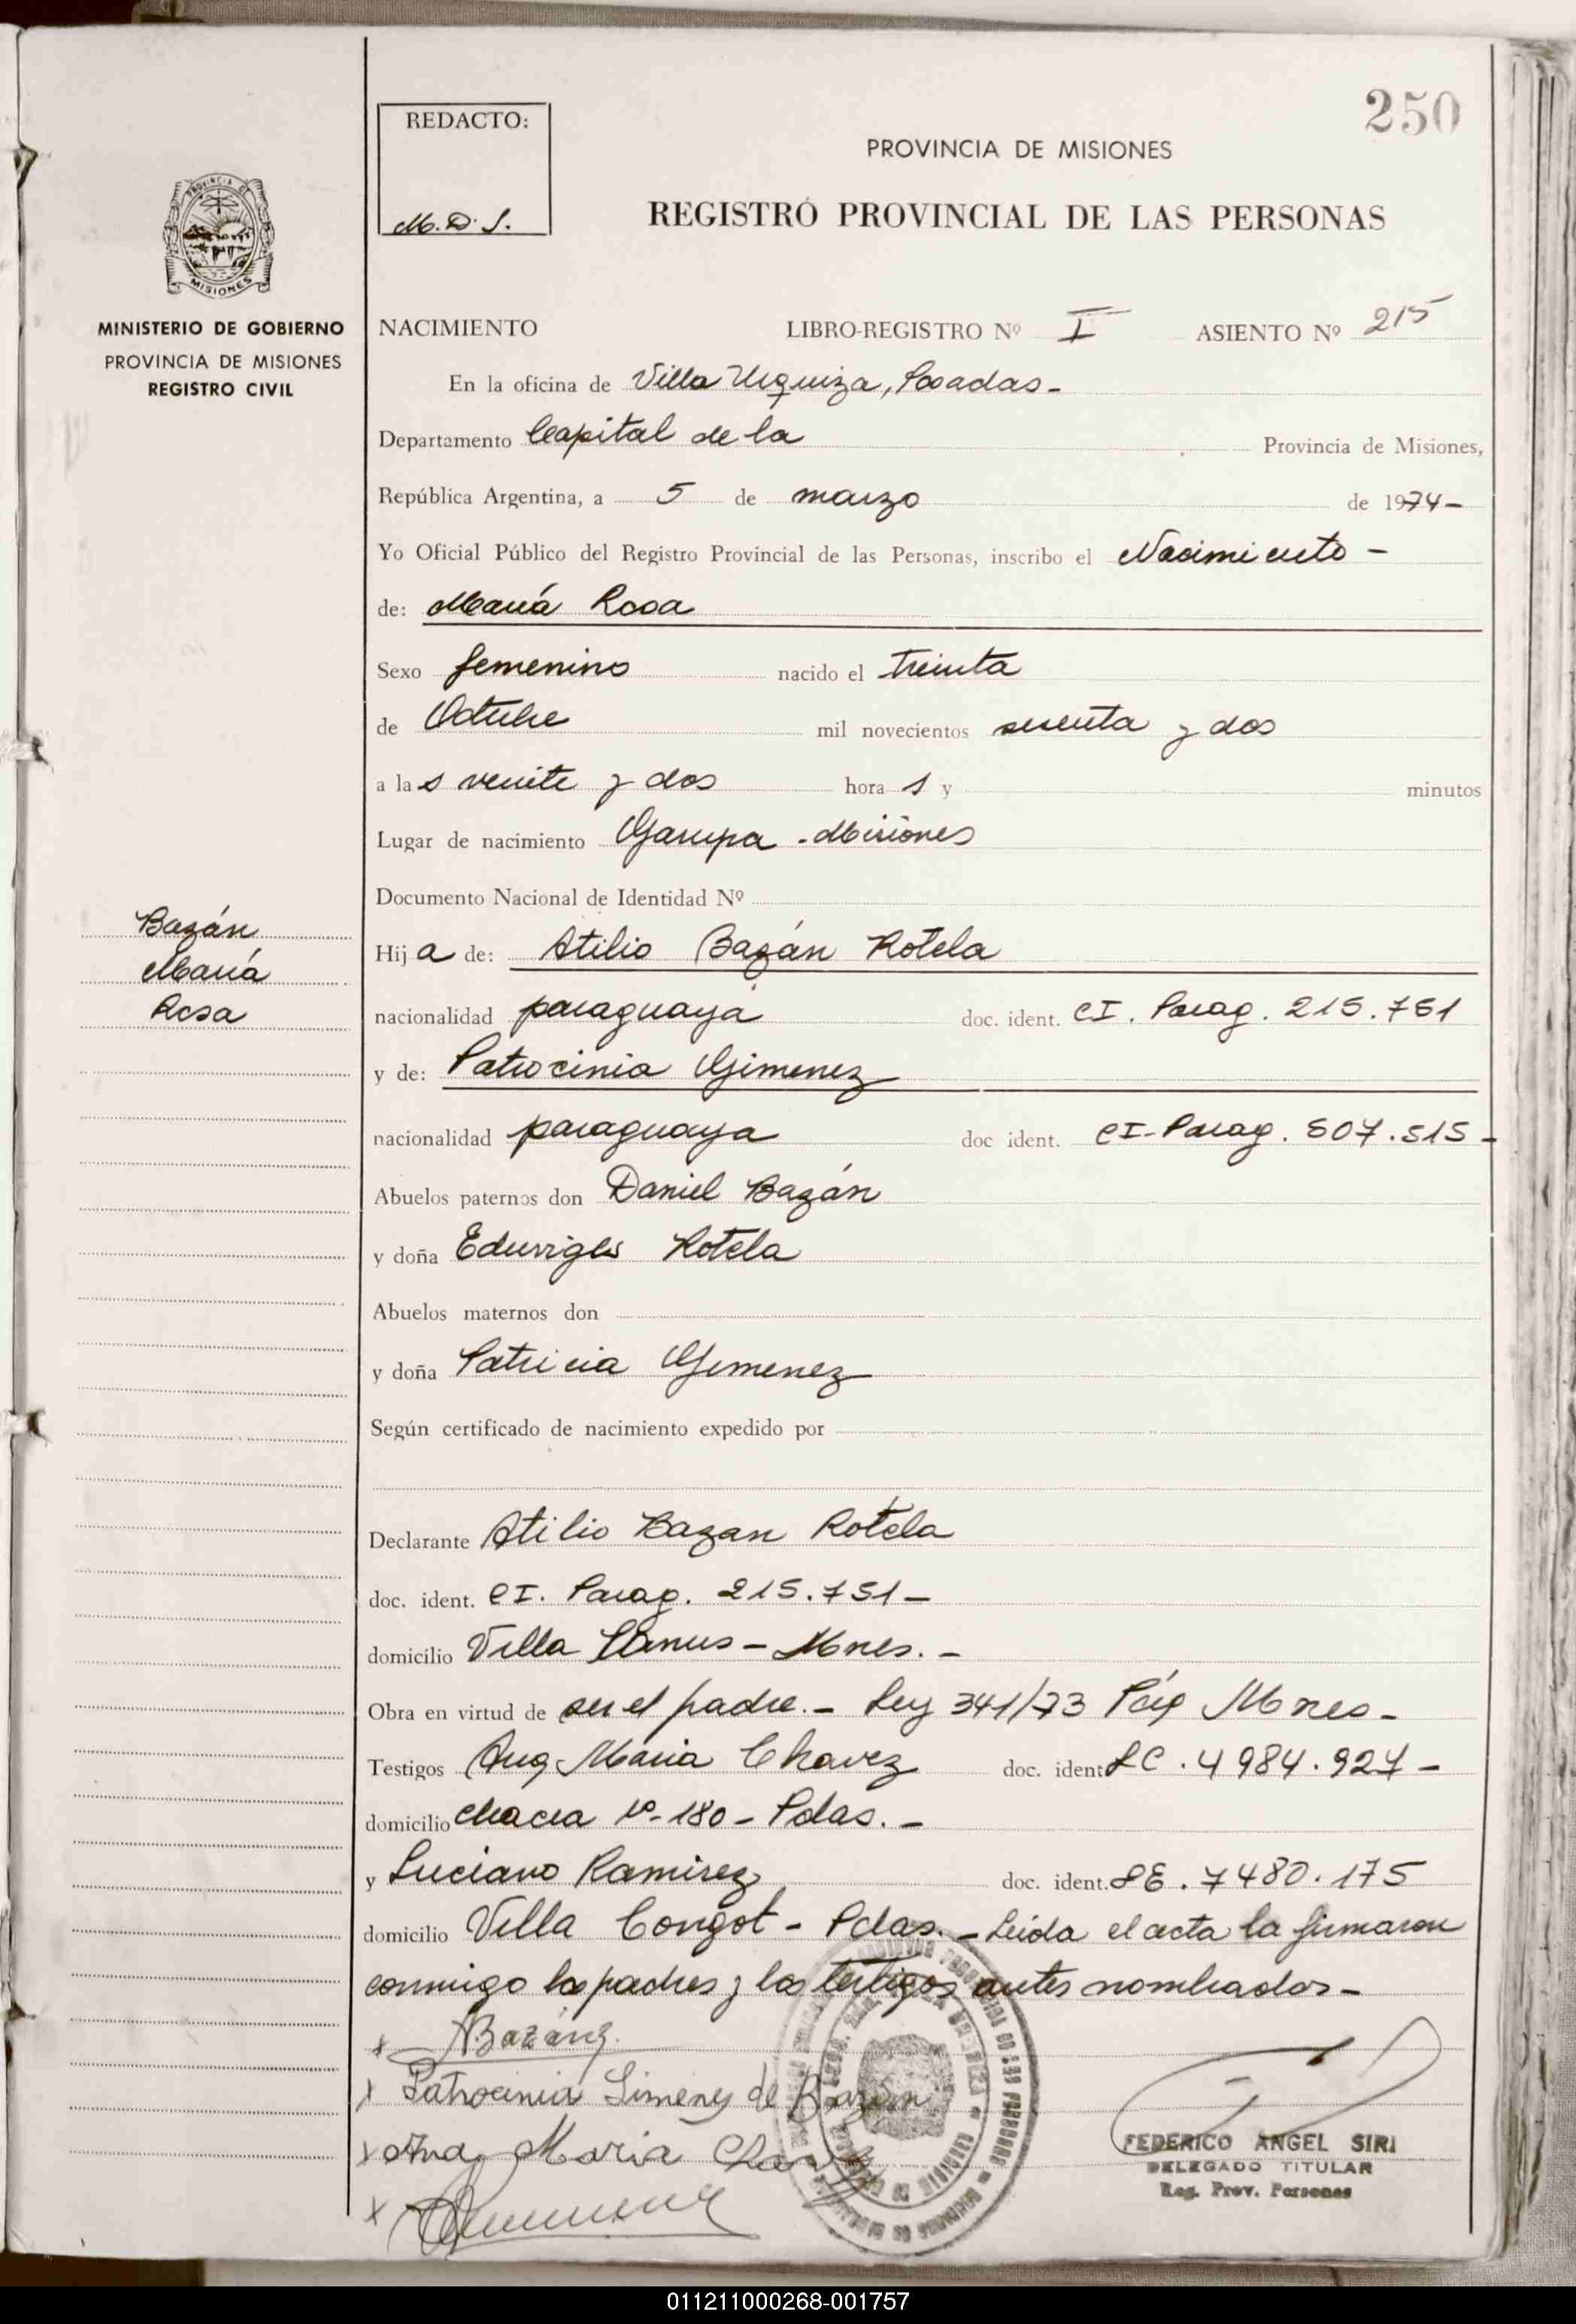 250
REDACTO:
M. D. S.
PROVINCIA DE MISIONES
REGISTRO PROVINCIAL DE LAS PERSONAS
PROVINCIA DE
MISIONES
MINISTERIO DE GOBIERNO
PROVINCIA DE MISIONES
REGISTRO CIVIL
NACIMIENTO LIBRO-REGISTRO Nº I ASIENTO Nº 215
En la oficina de Villa Urquiza, Posadas -
Departamento Capital de la Provincia de Misiones,
República Argentina, a 5 de marzo de 1974 -
Yo Oficial Público del Registro Provincial de las Personas, inscribo el Nacimiento -
de: María Rosa
Sexo femenino nacido el treinta
de Octubre mil novecientos sesenta y dos
a las veinte y dos horas y minutos
Lugar de nacimiento Garupa - Misiones
Documento Nacional de Identidad Nº
Bazán
María
Rosa
Hija de: Atilio Bazán Rotela
nacionalidad paraguaya doc. ident. CI. Parag. 215.751
y de: Patrocinia Gimenez
nacionalidad paraguaya doc ident. CI - Parag. 507.515 -
Abuelos paternos don Daniel Bazán
y doña Eduviges Rotela
Abuelos maternos don
y doña Patricia Gimenez
Según certificado de nacimiento expedido por
Declarante Atilio Bazan Rotela
doc. ident. CI. Parag. 215.751 -
domicilio Villa Lanus - Mnes. -
Obra en virtud de ser el padre. - Ley 341/73 Mnes -
Testigos Ana María Chavez doc. ident LC. 4984.927 -
domicilio Chacra Nº 180 - Pdas. -
y Luciano Ramirez doc. ident. LE. 7480.175
domicilio Villa Congot - Pdas. - Leida el acta la firmaron
conmigo los padres y los testigos antes nombrados -
x ABazáng.
x Patrocinia Gimenez de Bazán
x Ana Maria Chavez
x
FEDERICO ANGEL SIRI
DELEGADO TITULAR
Reg. Prov. Personas
011211000268-001757